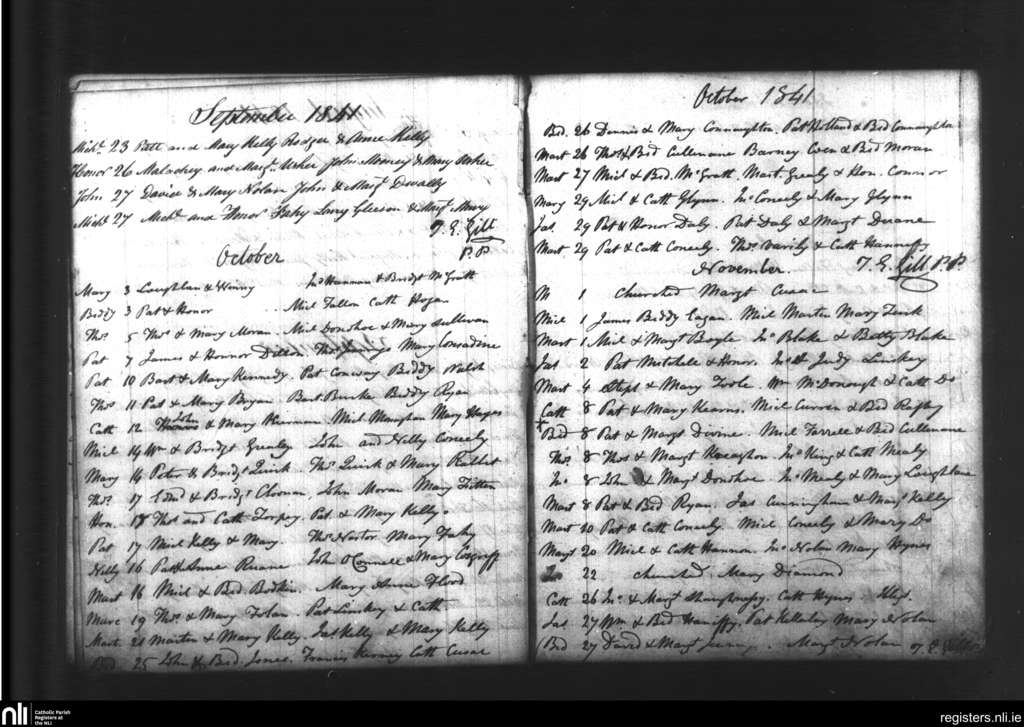 September 1841
Mich.l 23 Patt and Mary Kelly Rodger & Anne Kelly
Honor 26 Malachey and Marg.t Usher John Money & Mary Usher
John 27 David & Mary Nolan John & Marg.t Dwally
Mich.l 27 Mich.l and Honor Fahy Larry Gleeson & Marg.t
T. G. Gill
P.P.
October
Mary 3 Laughlan & Winny Jn.o Hannan & Bridg.t McGrath
Biddy 3 Pat & Honor Mich Fallon Cath Hogan
Tho.s 5 Tho.s & Mary Moran Mich Donohoe & Mary Sullivan
Pat 7 James & Honnor Dillon Mary Conradine
Pat 10 Bart & Mary Kennedy. Pat Conway Biddy Walsh
Tho.s 11 Pat & Mary Bryan Bart Burke Biddy Ryan
Cath 12 John & Mary Kiernan Mich Monghan Mary Hayes
Mich 14 W.m & Bridg.t Grealy John and Nelly Coneely
Mary 14 Peter & Bridg.t Quirk Tho.s Quirk & Mary Rabbit
Tho.s 17 Edm.d & Bridg.t Cloonan, John Moran Mary Fitton
Hon. 18 Tho.s and Cath Torpey, Pat & Mary Kelly
Pat 17 Mich Kelly & Mary. Tho.s Naxtor Mary Fahy
Nelly 16 Pat & Anne Ruane John O'Connell & Mary Cosgriff
Mart 16 Mich & Bed Bodkin. Mary Anne Flood
19 Tho.s & Mary Folan. Pat Linskey & Cath
Mart 21 Martin & Mary Kelly. Jas Kelly & Mary Kelly
Bed 25 John & Bed Jones. Francis Kierney Cath Cusac
October 1841
Bed. 26 Dennis & Mary Connaughton. Pat Holland & Bed Connaughton
Mart 26 Tho.s & Bed Cullenane Barney Coen & Bed Moran
Mart 27 Mich & Bed. McGrath. Mart. Grealy & Hon. Connor
Mary 29 Mich & Cath Glynn. Jn.o Coneely & Mary Glynn
Jas. 29 Pat & Honor Daly. Pat Daly & Marg.t Duane
Mart. 29 Pat & Cath Coneely. Tho.s Varily & Cath Hanneffy
November. T. G. Gill P.P.
M 1 Churched Marg.t Cusac
Mich 1 James Biddy Eagan. Mich Martin Mary Turk
Mart 1 Mich & Marg.t Boyle Jn.o Blake & Betty Blake
Jas 2 Pat Mitchell & Honor. Jn.o & Judy Linskey
Mart 4 Steph & Mary Toole. W.m McDonough & Cath Do
Cath 8 Pat & Mary Kearns. Mich Curren & Bed Raftry
Bid 8 Pat & Marg.t Divine. Mich Farrell & Bed Cullenane
Tho.s 8 Tho.s & Marg.t Jn.o King & Cath Mealy
Jn.o 8 John & Marg.t Donohoe. Jn.o Mealy & Mary Laughlane
Mart 8 Pat & Bed Ryan. Jas Cunningham & Marg.t Kelly
Mart 10 Pat & Cath Coneely. Mich Coneely & Mary Do
Marg.t 20 Mich & Cath Hannon. Jn.o Nolan Mary Wynes
22 Churched Mary Diamond
Cath 26 Jn.o & Marg.t Cath Hynes
Jas. 27 W.m & Bed Haniffy. Pat Kellehey Mary Nolan
Bed 27 David & Marg.t Marg.t Nolan T. G. Gill
nli
Catholic Parish
Registers at
the NLI
registers.nli.ie